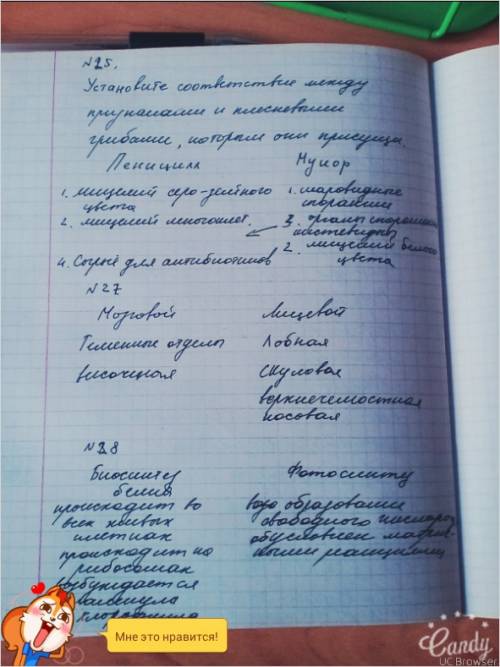 №25.
Установите соответствие между
признаками и плесневыми
грибами, которым они присущи.
Пеницилл Мукор
1. мицелий серо-зелёного 1. шаровидные
цвета спорангии
2. мицелий многоклет. 3. органы спороношения
кистевидны
4. Сырьё для антибиотиков 2. мицелий белого
цвета
№27
Мозговой Лицевой
Теменные отделы Лобная
височная скуловая
верхнечелюстная
носовая
№28
Биосинтез Фотосинтез
белка
происходит во образование
всех живых свободного
клетках обусловлен
происходит на реакциями
рибосомах
возбуждается
молекула
хлорофилла
Мне это нравится!
Candy
UC Browser